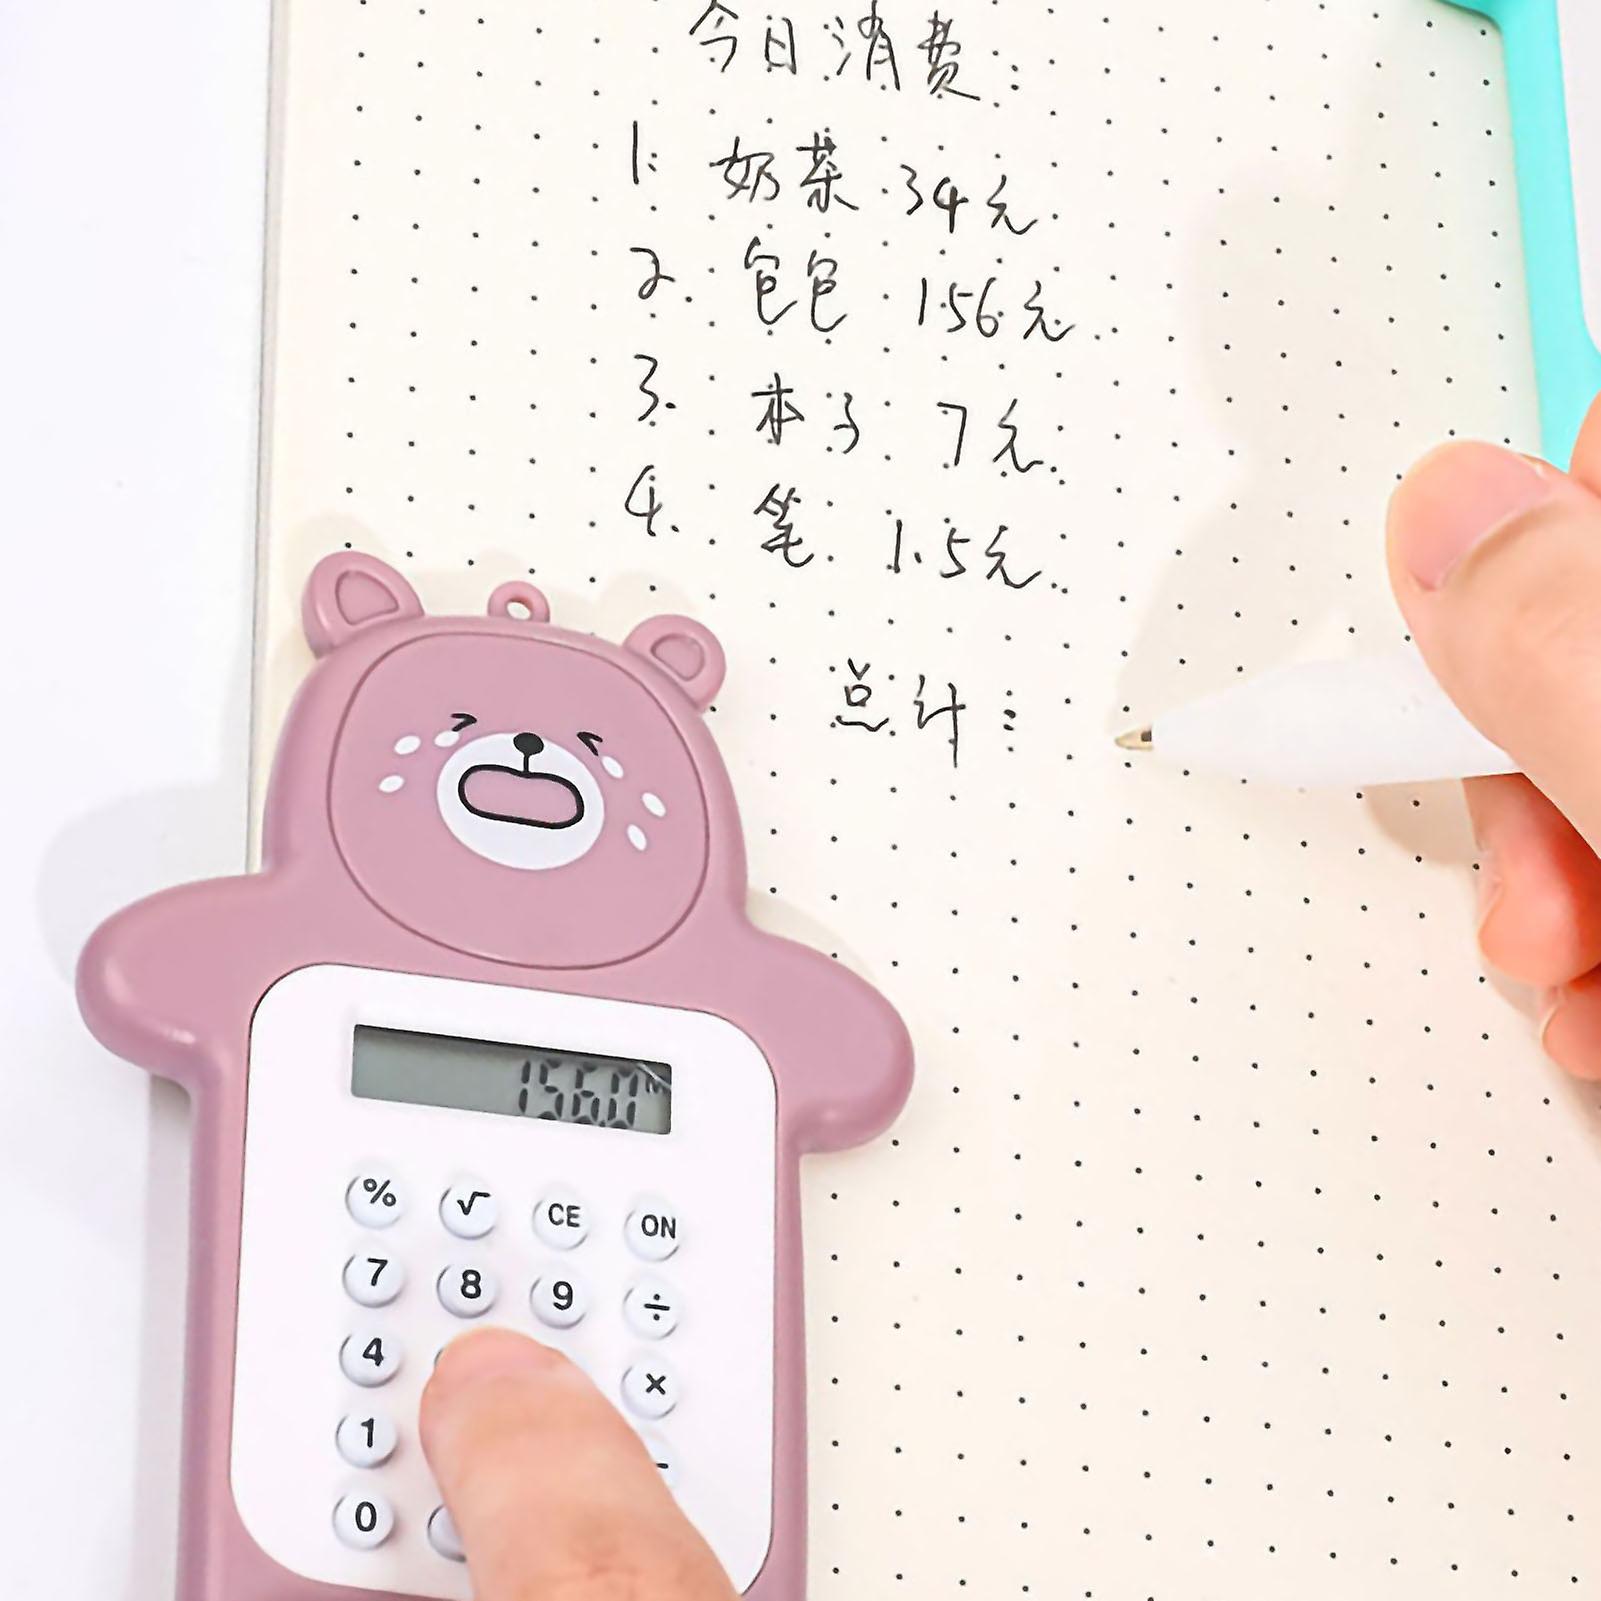 今日消费:
1. 奶茶 34元
2. 包包 156元
3. 本子 7元
4. 笔 1.5元
总计:
% √ CE ON
7 8 9 ÷
4 ×
1 -
0